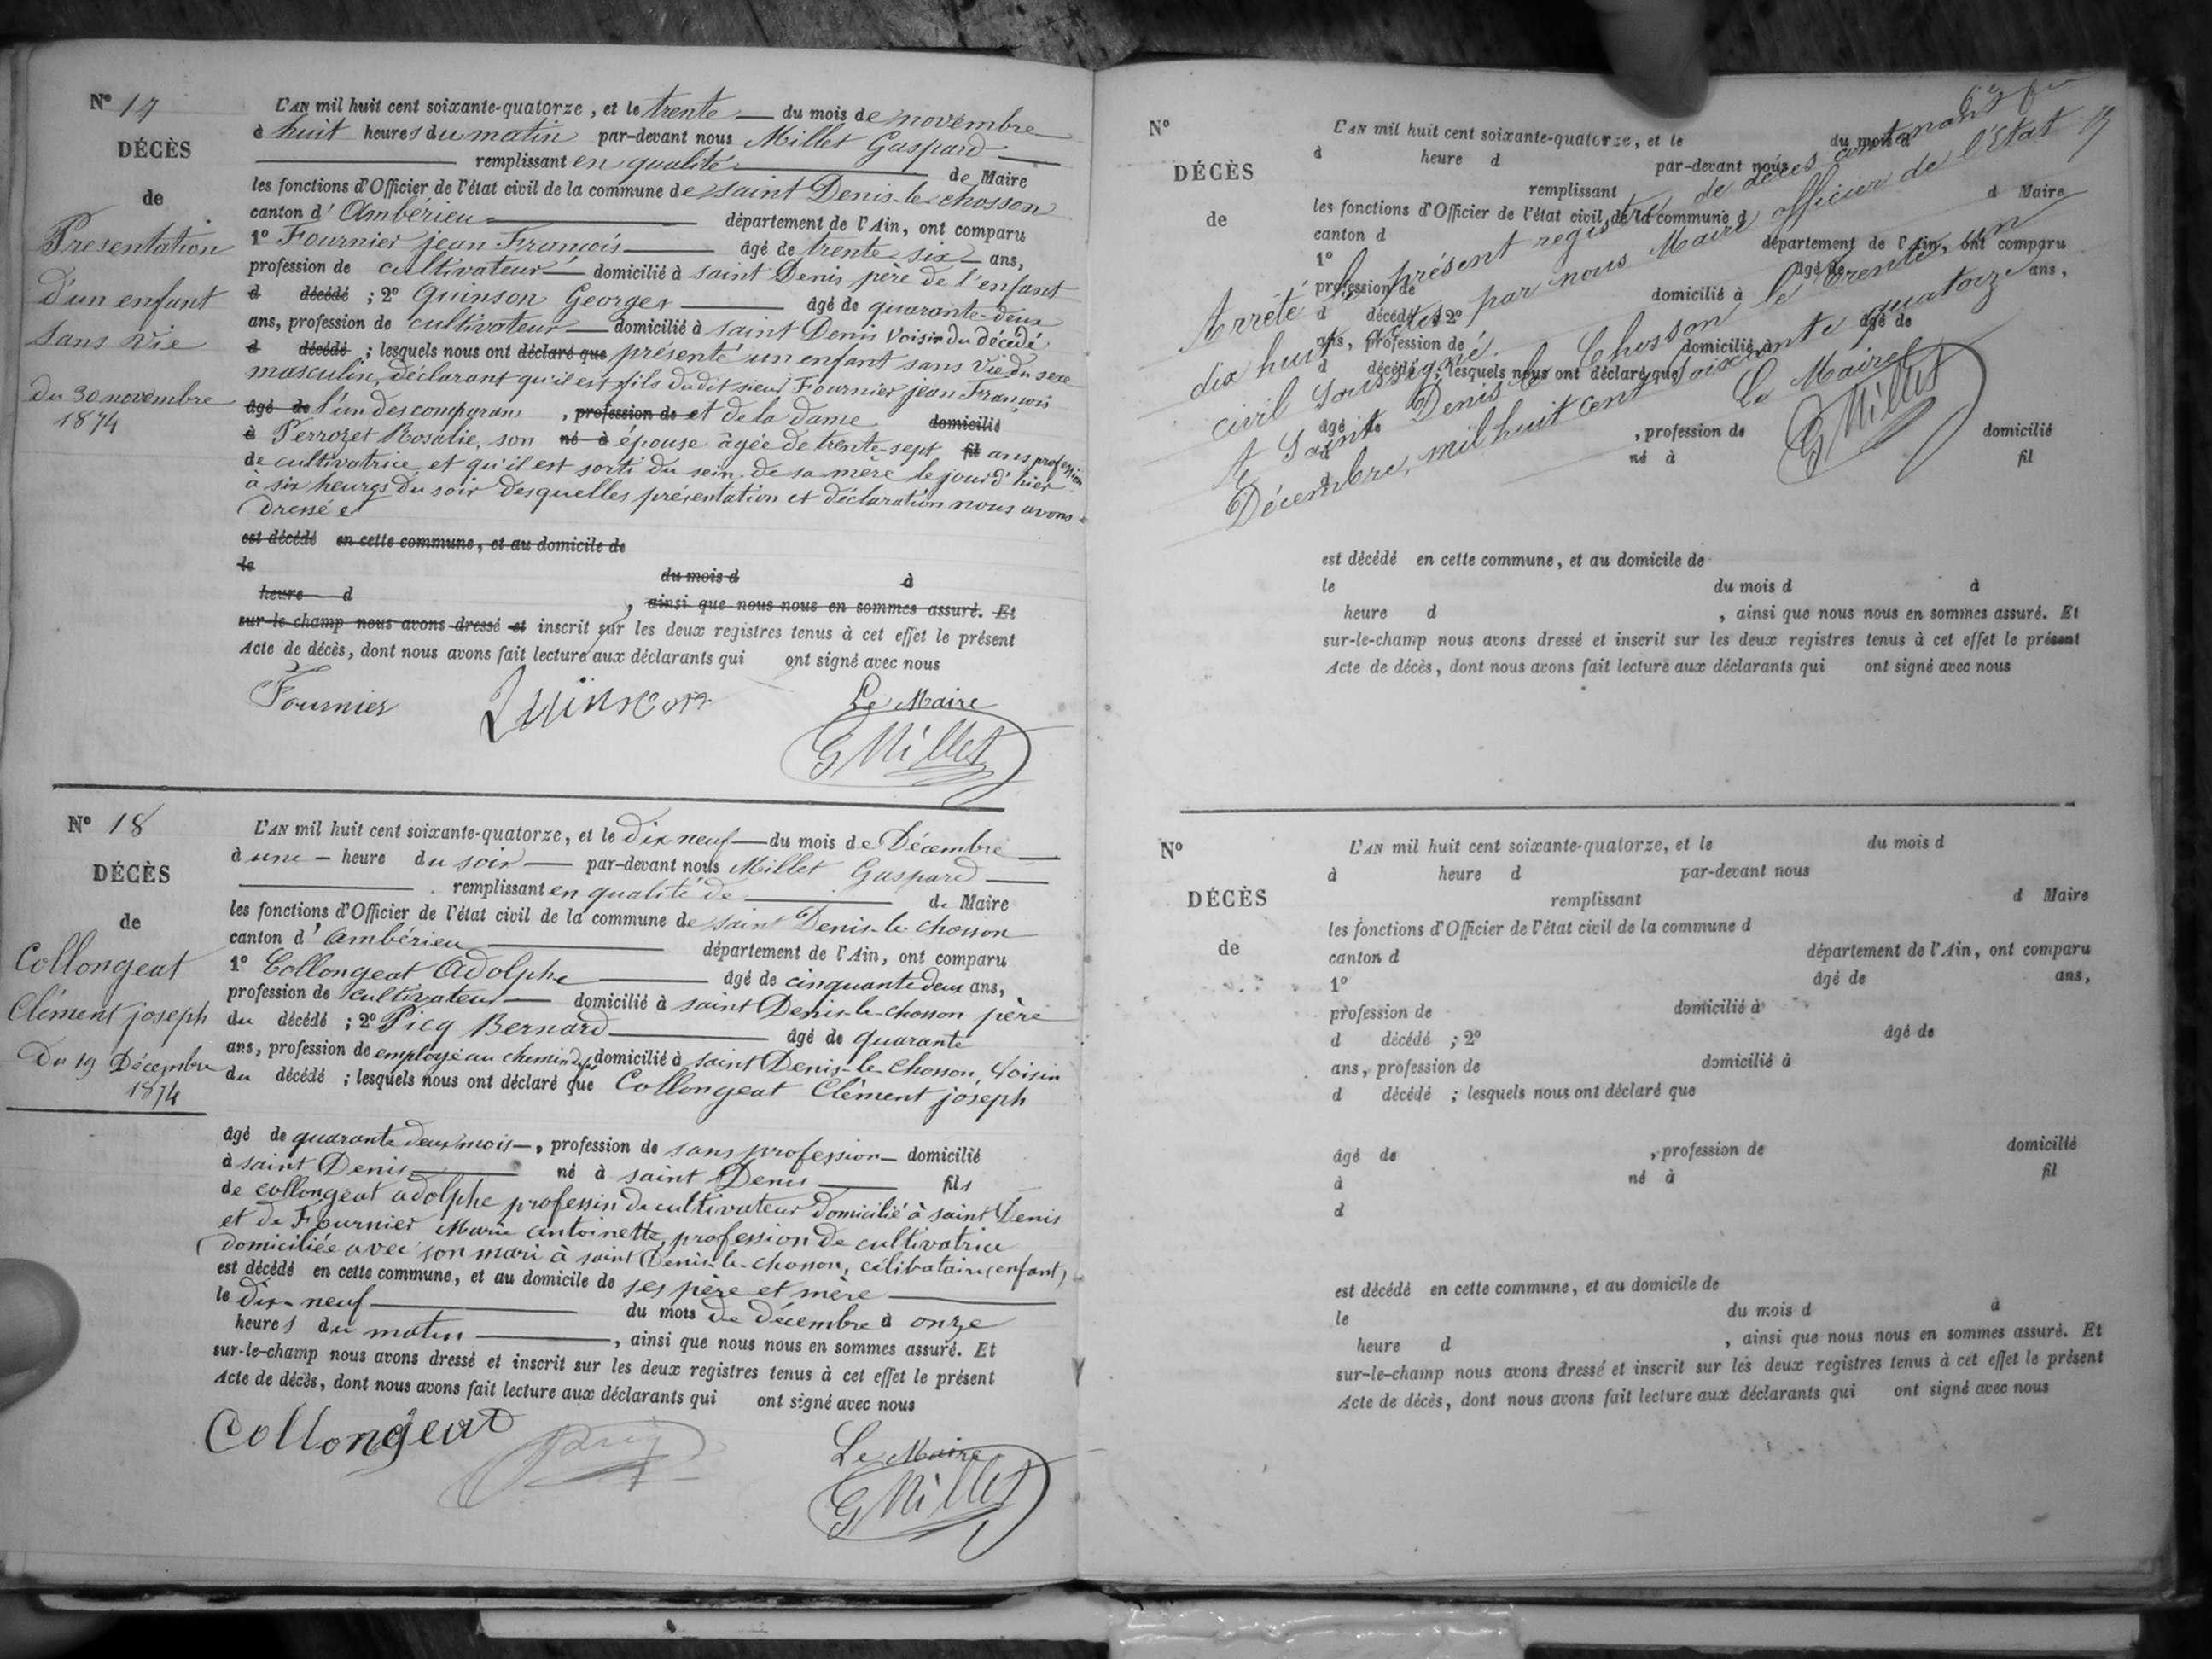 N° 17
DÉCÈS
de
Presentation
d'un enfant
sans vie
du 30 novembre
1874
L'AN mil huit cent soixante-quatorze, et le trente du mois de novembre
à huit heures du matin par-devant nous Millet Gaspard
remplissant en qualité de Maire
les fonctions d'Officier de l'état civil de la commune de saint Denis-le-chosson
canton d'Ambérieu département de l'Ain, ont comparu
1° Fournier jean François âgé de trente six ans,
profession de cultivateur domicilié à saint Denis père de l'enfant
d décédé ; 2° Quinson Georges âgé de quarante-deux
ans, profession de cultivateur domicilié à saint Denis voisin du décédé
d décédé ; lesquels nous ont déclaré que présenté un enfant sans vie du sexe
masculin, déclarant qu'il est fils dudit sieur Fournier jean François
âgé de l'un des comparans , profession de et de la dame domicilié
à Perrozet Rosalie, son né à épouse âgée de trente sept fil ans profession
de cultivatrice et qu'il est sorti du sein de sa mère le jour d'hier
à six heures du soir desquelles présentation et déclaration nous avons
dressé et
est décédé en cette commune, et au domicile de
le du mois d à
heure d , ainsi que nous nous en sommes assuré. Et
sur-le-champ nous avons dressé et inscrit sur les deux registres tenus à cet effet le présent
Acte de décès, dont nous avons fait lecture aux déclarants qui ont signé avec nous
Fournier Quinson Le Maire
G Millet
N° 18
DÉCÈS
de
Collongeat
Clément joseph
Du 19 Décembre
1874
L'AN mil huit cent soixante-quatorze, et le dix-neuf du mois de Décembre
à une heure du soir par-devant nous Millet Gaspard
remplissant en qualité de de Maire
les fonctions d'Officier de l'état civil de la commune de saint Denis-le-chosson
canton d'Ambérieu département de l'Ain, ont comparu
1° Collongeat Adolphe âgé de cinquante deux ans,
profession de cultivateur domicilié à saint Denis-le-chosson père
du décédé ; 2° Picq Bernard âgé de quarante
ans, profession de employé au chemin de fer domicilié à saint Denis-le-Chosson, voisin
du décédé ; lesquels nous ont déclaré que Collongeat Clément joseph
âgé de quarante deux mois, profession de sans profession domicilié
à saint Denis né à saint Denis fils
de collongeat adolphe professin de cultivateur domicilié à saint Denis
et de Fournier Marie antoinette, profession de cultivatrice
domiciliée avec son mari à saint Denis-le-chosson, célibataire (enfant)
est décédé en cette commune, et au domicile de ses père et mère
le dix-neuf du mois de décembre à onze
heures du matin , ainsi que nous nous en sommes assuré. Et
sur-le-champ nous avons dressé et inscrit sur les deux registres tenus à cet effet le présent
Acte de décès, dont nous avons fait lecture aux déclarants qui ont signé avec nous
Collongeat Picq Le Maire
G Millet
N°
DÉCÈS
de
L'AN mil huit cent soixante-quatorze, et le du mois d
à heure d par-devant nous
remplissant d Maire
les fonctions d'Officier de l'état civil de la commune d
canton d département de l'Ain, ont comparu
1° âgé de ans,
profession de domicilié à
d décédé ; 2° âgé de
ans, profession de domicilié à
d décédé ; lesquels nous ont déclaré que
âgé de , profession de domicilié
à né à fil
d
Arrêté le présent registre de décès contenant
dix huit actes par nous Maire officier de l'État
civil soussigné.
A Saint Denis le Chosson le trente un
Décembre, mil huit cent soixante quatorze
Le Maire
G Millet
est décédé en cette commune, et au domicile de
le du mois d à
heure d , ainsi que nous nous en sommes assuré. Et
sur-le-champ nous avons dressé et inscrit sur les deux registres tenus à cet effet le présent
Acte de décès, dont nous avons fait lecture aux déclarants qui ont signé avec nous
N°
DÉCÈS
de
L'AN mil huit cent soixante-quatorze, et le du mois d
à heure d par-devant nous
remplissant d Maire
les fonctions d'Officier de l'état civil de la commune d
canton d département de l'Ain, ont comparu
1° âgé de ans,
profession de domicilié à
d décédé ; 2° âgé de
ans, profession de domicilié à
d décédé ; lesquels nous ont déclaré que
âgé de , profession de domicilié
à né à fil
d
est décédé en cette commune, et au domicile de
le du mois d à
heure d , ainsi que nous nous en sommes assuré. Et
sur-le-champ nous avons dressé et inscrit sur les deux registres tenus à cet effet le présent
Acte de décès, dont nous avons fait lecture aux déclarants qui ont signé avec nous